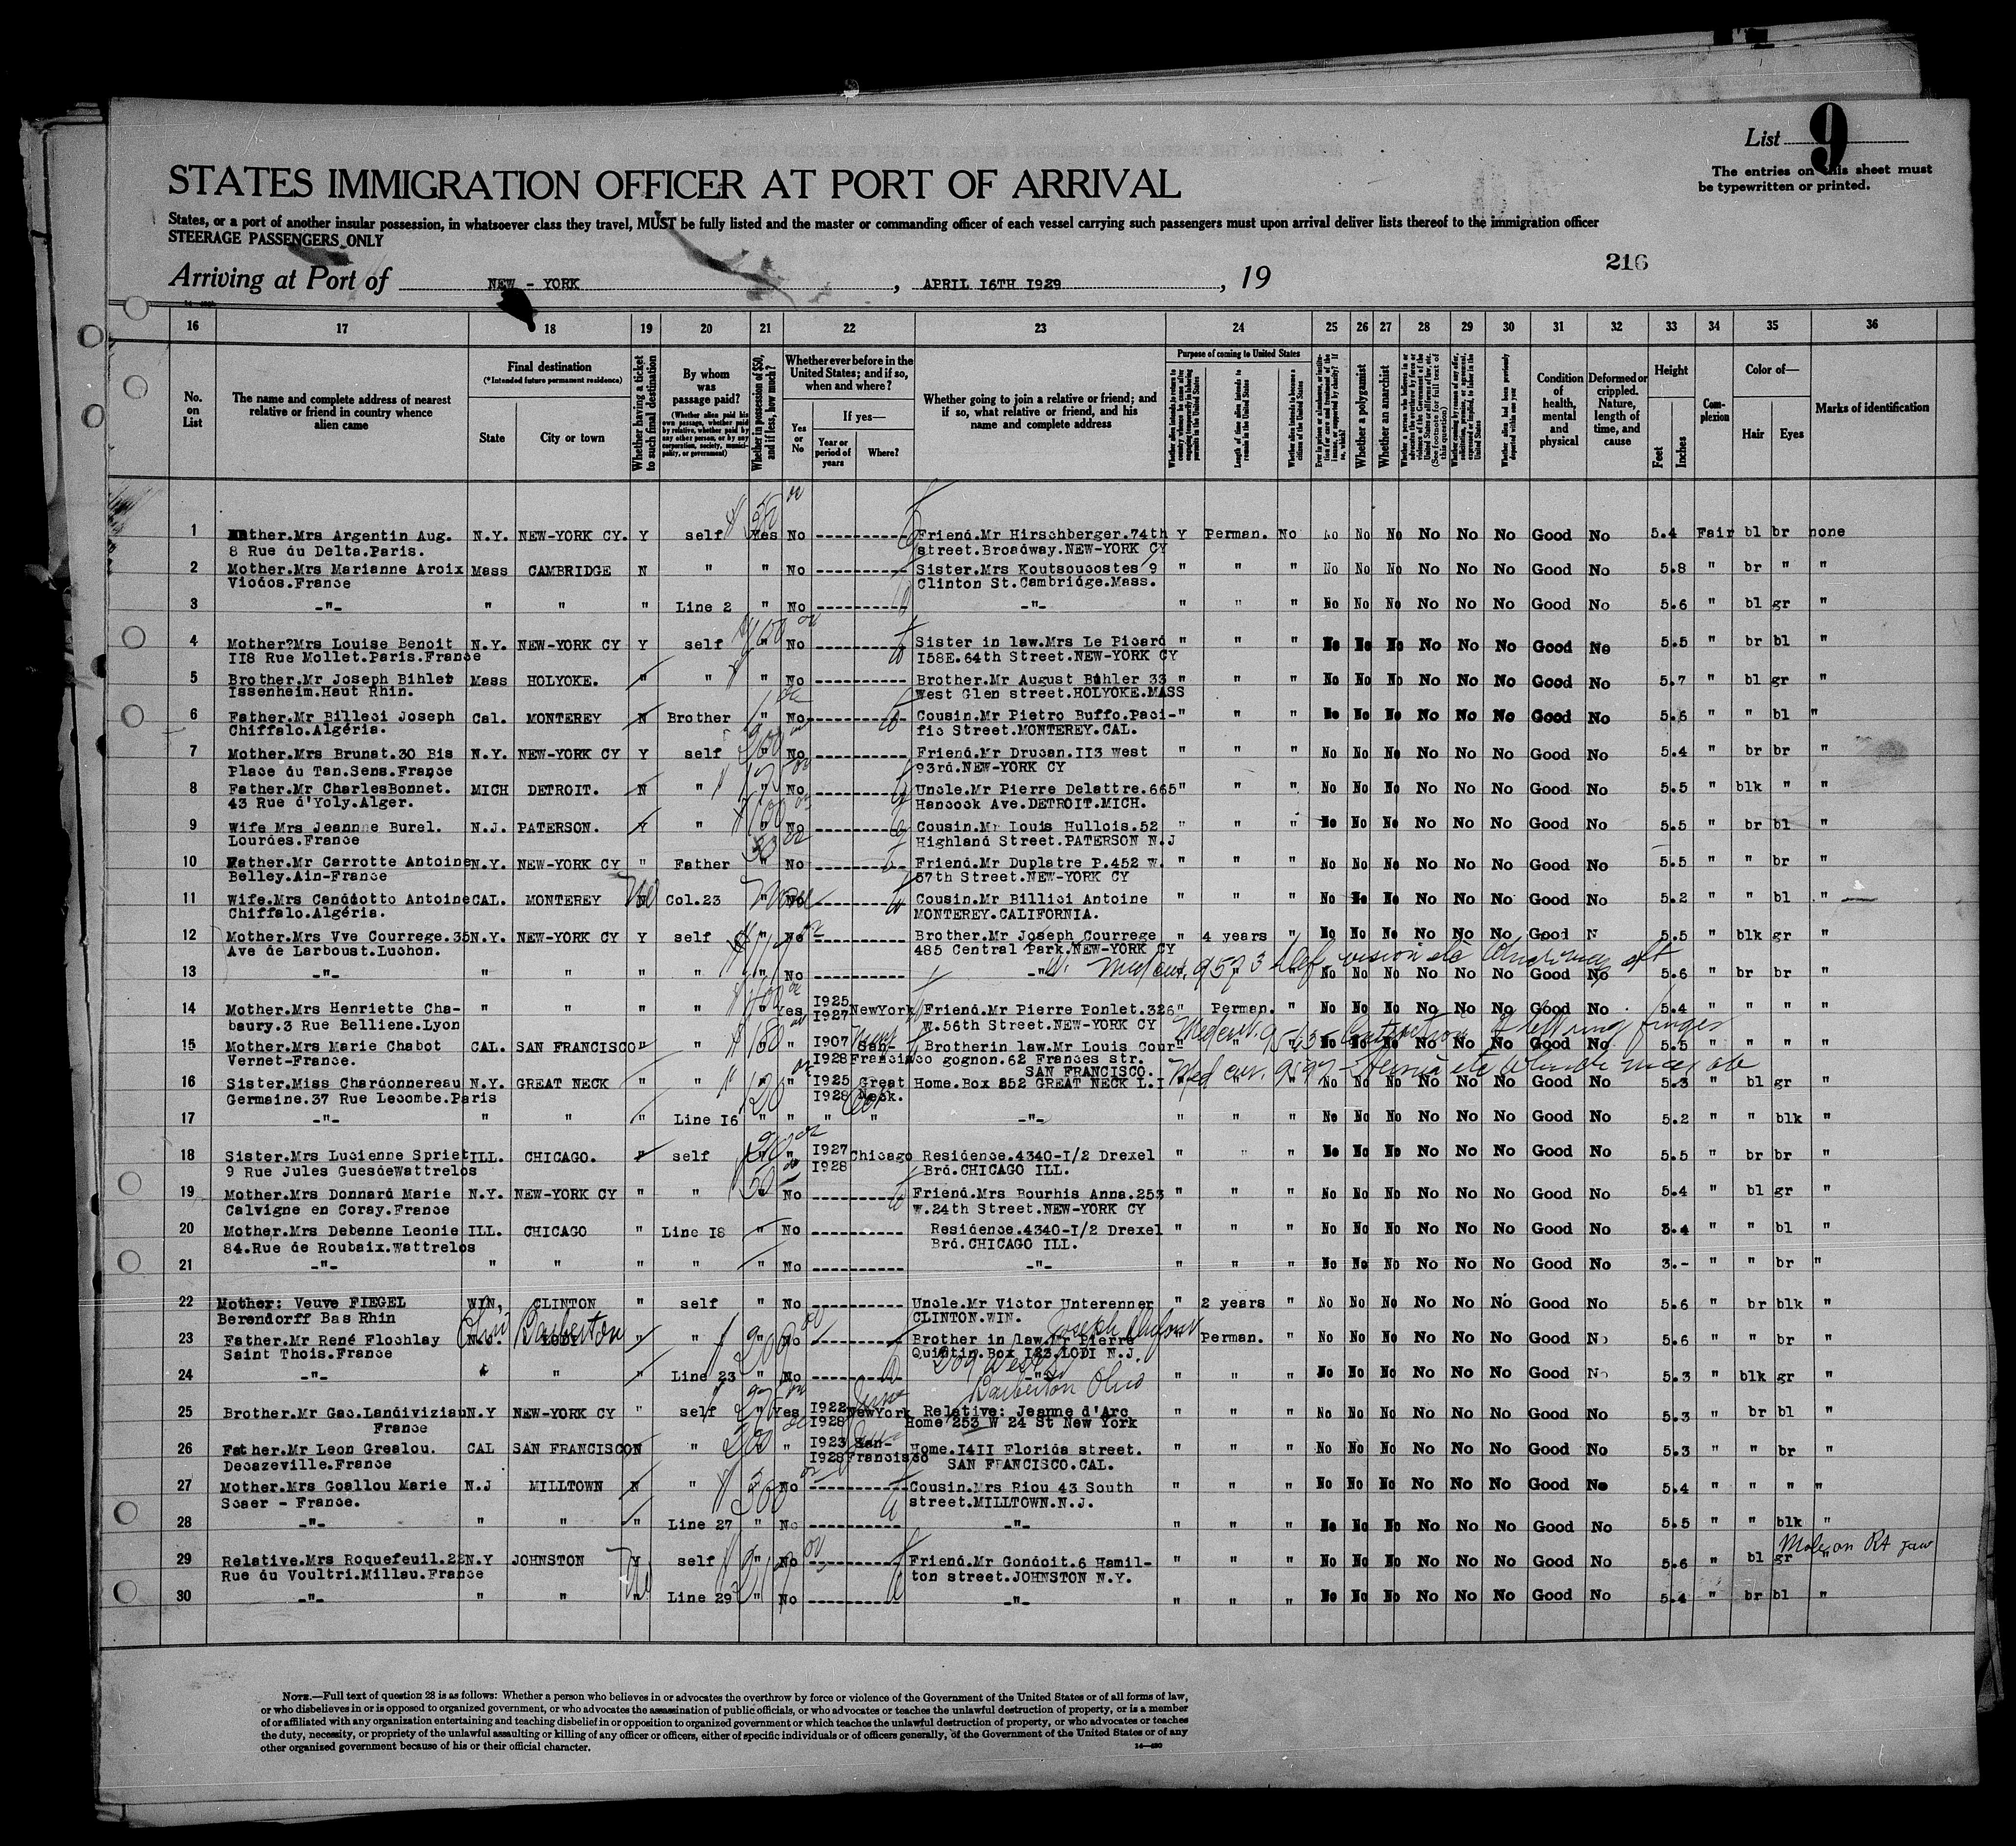 List 9
The entries on this sheet must
be typewritten or printed.
STATES IMMIGRATION OFFICER AT PORT OF ARRIVAL
States, or a port of another insular possession, in whatsoever class they travel, MUST be fully listed and the master or commanding officer of each vessel carrying such passengers must upon arrival deliver lists thereof to the immigration officer
STEERAGE PASSENGERS ONLY
216
Arriving at Port of NEW - YORK , APRIL 16TH 1929 , 19
16 17 18 19 20 21 22 23 24 25 26 27 28 29 30 31 32 33 34 35 36
No. on List
The name and complete address of nearest relative or friend in country whence alien came
Final destination
(*Intended future permanent residence)
State
City or town
Whether having a ticket to such final destination
By whom was passage paid?
(Whether alien paid his own passage, whether paid by relative, whether paid by any other person, or by any corporation, society, municipality, or government)
Whether in possession of $50, and if less, how much?
Whether ever before in the United States; and if so, when and where?
Yes or No
If yes—
Year or period of years
Where?
Whether going to join a relative or friend; and if so, what relative or friend, and his name and complete address
Purpose of coming to United States
Length of time alien intends to remain in the United States
Whether alien intends to become a citizen of the United States
Whether a polygamist
Whether an anarchist
Condition of health, mental and physical
Deformed or crippled. Nature, length of time, and cause
Height
Feet
Inches
Complexion
Color of—
Hair
Eyes
Marks of identification
1 Mother.Mrs Argentin Aug. N.Y. NEW-YORK CY. Y self Yes No Friend.Mr Hirschberger.74th Y Perman. No No No No No No No Good No 5.4 Fair bl br none
8 Rue du Delta.Paris. street.Broadway.NEW-YORK CY
2 Mother.Mrs Marianne Aroix Mass CAMBRIDGE N " " No Sister.Mrs Koutsoucostes 9 " " " No No No No No No Good No 5.8 " br " "
Viodos.France Clinton St.Cambridge.Mass.
3 -"- " " " Line 2 " No -"- " " " No No No No No No Good No 5.6 " bl gr "
4 Mother?Mrs Louise Benoit N.Y. NEW-YORK CY Y self " No Sister in law.Mrs Le Picard " " " No No No No No No Good No 5.5 " br bl "
118 Rue Mollet.Paris.France 158E.64th Street.NEW-YORK CY
5 Brother.Mr Joseph Bihler Mass HOLYOKE. " " " No Brother.Mr August Buhler 33 " " " No No No No No No Good No 5.7 " bl gr "
Issenheim.Haut Rhin. West Glen street.HOLYOKE.MASS
6 Father.Mr Billeci Joseph Cal. MONTEREY N Brother " No Cousin.Mr Pietro Buffo.Paci- " " " No No No No No No Good No 5.5 " " bl "
Chiffalo.Algéria. fic Street.MONTEREY.CAL.
7 Mother.Mrs Brunat.30 Bis N.Y. NEW-YORK CY Y self " No Friend.Mr Drucan.113 West " " " No No No No No No Good No 5.4 " br br "
Place du Tan.Sens.France 93rd.NEW-YORK CY
8 Father.Mr CharlesBonnet. MICH DETROIT. N " " No Uncle.Mr Pierre Delattre.665 " " " No No No No No No Good No 5.5 " blk " "
43 Rue d'Yoly.Alger. Hancock Ave.DETROIT.MICH.
9 Wife Mrs Jeannne Burel. N.J. PATERSON. Y " " No Cousin.Mr Louis Hullois.52 " " " No No No No No No Good No 5.5 " br bl "
Lourdes.France Highland Street.PATERSON N.J
10 Father.Mr Carrotte Antoine N.Y. NEW-YORK CY " Father " No Friend.Mr Duplatre P.452 W. " " " No No No No No No Good No 5.5 " " br "
Belley.Ain-France 57th Street.NEW-YORK CY
11 Wife.Mrs Canddotto Antoine CAL. MONTEREY N Col.23 " No Cousin.Mr Billici Antoine " " " No No No No No No Good No 5.2 " " bl "
Chiffalo.Algéria. MONTEREY.CALIFORNIA.
12 Mother.Mrs Vve Courrege.35 N.Y. NEW-YORK CY Y self " No Brother.Mr Joseph Courrege " 4 years " No No No No No No Good N 5.5 " blk gr "
Ave de Larboust.Luchon. 485 Central Park.NEW-YORK CY
13 -"- " " " " " No -"- " " No No No No No No Good No 5.6 " br br "
14 Mother.Mrs Henriette Cha- " " " " " Yes 1925 1927 NewYork Friend.Mr Pierre Ponlet.326 " Perman. " No No No No No No Good No 5.4 " " " "
baury.3 Rue Belliene.Lyon W.56th Street.NEW-YORK CY
15 Mother.Mrs Marie Chabot CAL. SAN FRANCISCO " " " " 1907 1928 San-Francisco Brotherin law.Mr Louis Cour- No No No No No No Good No 5.5 " " " "
Vernet-France. gognon.62 Frances str.
SAN FRANCISCO.
16 Sister.Miss Chardonnereau N.Y. GREAT NECK " " " " 1925 1928 Great Neck. Home.Box 852 GREAT NECK L.I " " " No No No No No No Good No 5.3 " bl gr "
Germaine.37 Rue Lecombe.Paris
17 -"- " " " Line 16 " " " " -"- " " " No No No No No No Good No 5.2 " " blk "
18 Sister.Mrs Lucienne Spriet ILL. CHICAGO. " self " " 1927 1928 Chicago Residence.4340-1/2 Drexel " " " No No No No No No Good No 5.5 " br br "
9 Rue Jules GuesdeWattrelos Brd.CHICAGO ILL.
19 Mother.Mrs Donnard Marie N.Y. NEW-YORK CY " " " No Friend.Mrs Bourhis Anna.253 " " " No No No No No No Good No 5.4 " bl gr "
Calvigne en Coray.France W.24th Street.NEW-YORK CY
20 Mother.Mrs Debenne Leonie ILL. CHICAGO " Line 18 " No Residence.4340-1/2 Drexel " " " No No No No No No Good No 3.4 " " bl "
84.Rue de Roubaix.Wattrelos Brd.CHICAGO ILL.
21 -"- " " " " " No -"- " " " No No No No No No Good No 3.- " " br "
22 Mother: Veuve FIEGEL WIN, CLINTON " self " No Uncle.Mr Victor Unterenner " 2 years " No No No No No No Good No 5.6 " br blk "
Berendorff Bas Rhin CLINTON.WIN.
Ohio Barberton
23 Father.Mr René Flochlay N.J. LODI " " " No Brother in law.Mr Pierre " Perman. " No No No No No No Good No 5.6 " " br "
Saint Thois.France Quintin.Box 123.LODI N.J.
24 -"- " " " Line 23 " No -"- " " " No No No No No No Good No 5.3 " blk gr "
Barberton Ohio
25 Brother.Mr Gac.Landiviziau N.Y NEW-YORK CY " self " Yes 1922 1928 NewYork Relative: Jeanne d'Arc " " " No No No No No No Good No 5.3 " br bl "
France Home 253 W 24 St New York
26 Father.Mr Leon Grealou. CAL SAN FRANCISCO N " " " 1923 1928 San-Francisco Home.1411 Florida street. " " " No No No No No No Good No 5.3 " " br "
Decazeville.France SAN FRANCISCO.CAL.
27 Mother.Mrs Goallou Marie N.J MILLTOWN N " No Cousin.Mrs Riou 43 South " " " No No No No No No Good No 5.4 " " " "
Scaer - France. street.MILLTOWN.N.J.
28 -"- " " " Line 27 " No -"- " " " No No No No No No Good No 5.5 " " blk "
Mole on Rt jaw
29 Relative.Mrs Roquefeuil.22 N.Y JOHNSTON Y self " No Friend.Mr Gondoit.6 Hamil- " " " No No No No No No Good No 5.6 " bl gr "
Rue du Voultri.Millau.France ton street.JOHNSTON N.Y.
30 -"- " " " Line 29 " No -"- " " " No No No No No No Good No 5.4 " br bl "
NOTE.—Full text of question 28 is as follows: Whether a person who believes in or advocates the overthrow by force or violence of the Government of the United States or of all forms of law,
or who disbelieves in or is opposed to organized government, or who advocates the assassination of public officials, or who advocates or teaches the unlawful destruction of property, or is a member
of or affiliated with any organization entertaining and teaching disbelief in or opposition to organized government or which teaches the unlawful destruction of property, or who advocates or teaches
the duty, necessity, or propriety of the unlawful assaulting or killing of any officer or officers, either of specific individuals or of officers generally, of the Government of the United States or of any
other organized government because of his or their official character.
14—480